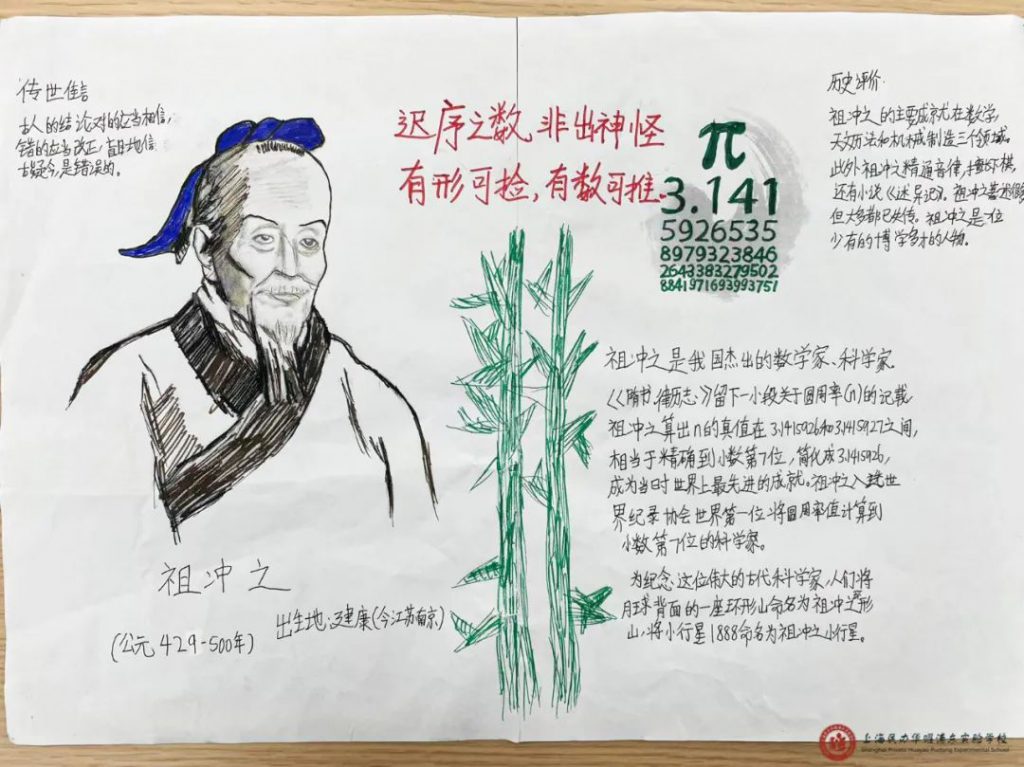 传世佳言
古人的结论对的应当相信,
错的应当改正,盲目地信
古疑今,是错误的。
迟序之数 非出神怪
有形可捡,有数可推.
π
3.141
5926535
8979323846
2643383279502
8841971693993751
历史评价:
祖冲之的主要成就在数学,
天文历法和机械制造三个领域。
此外祖冲之精通音律,擅长下棋,
还有小说《述异记》. 祖冲之著述
但大多都已失传. 祖冲之是一位
少有的博学多才的人物。
祖冲之是我国杰出的数学家、科学家
《隋书.律历志》留下一小段关于圆周率(n)的记载
祖冲之算出n的真值在3.1415926和3.1415927之间,
相当于精确到小数第7位,简化成3.1415926,
成为当时世界上最先进的成就.祖冲之入选世
界纪录协会世界第一位将圆周率值计算到
小数第7位的科学家。
为纪念这位伟大的古代科学家,人们将
月球背面的一座环形山命名为祖冲之环形
山,将小行星1888命名为祖冲之小行星。
祖冲之
(公元 429-500年)
出生地:建康(今江苏南京)
上海民办华曜浦东实验学校
Shanghai Private Huayao Pudong Experimental School